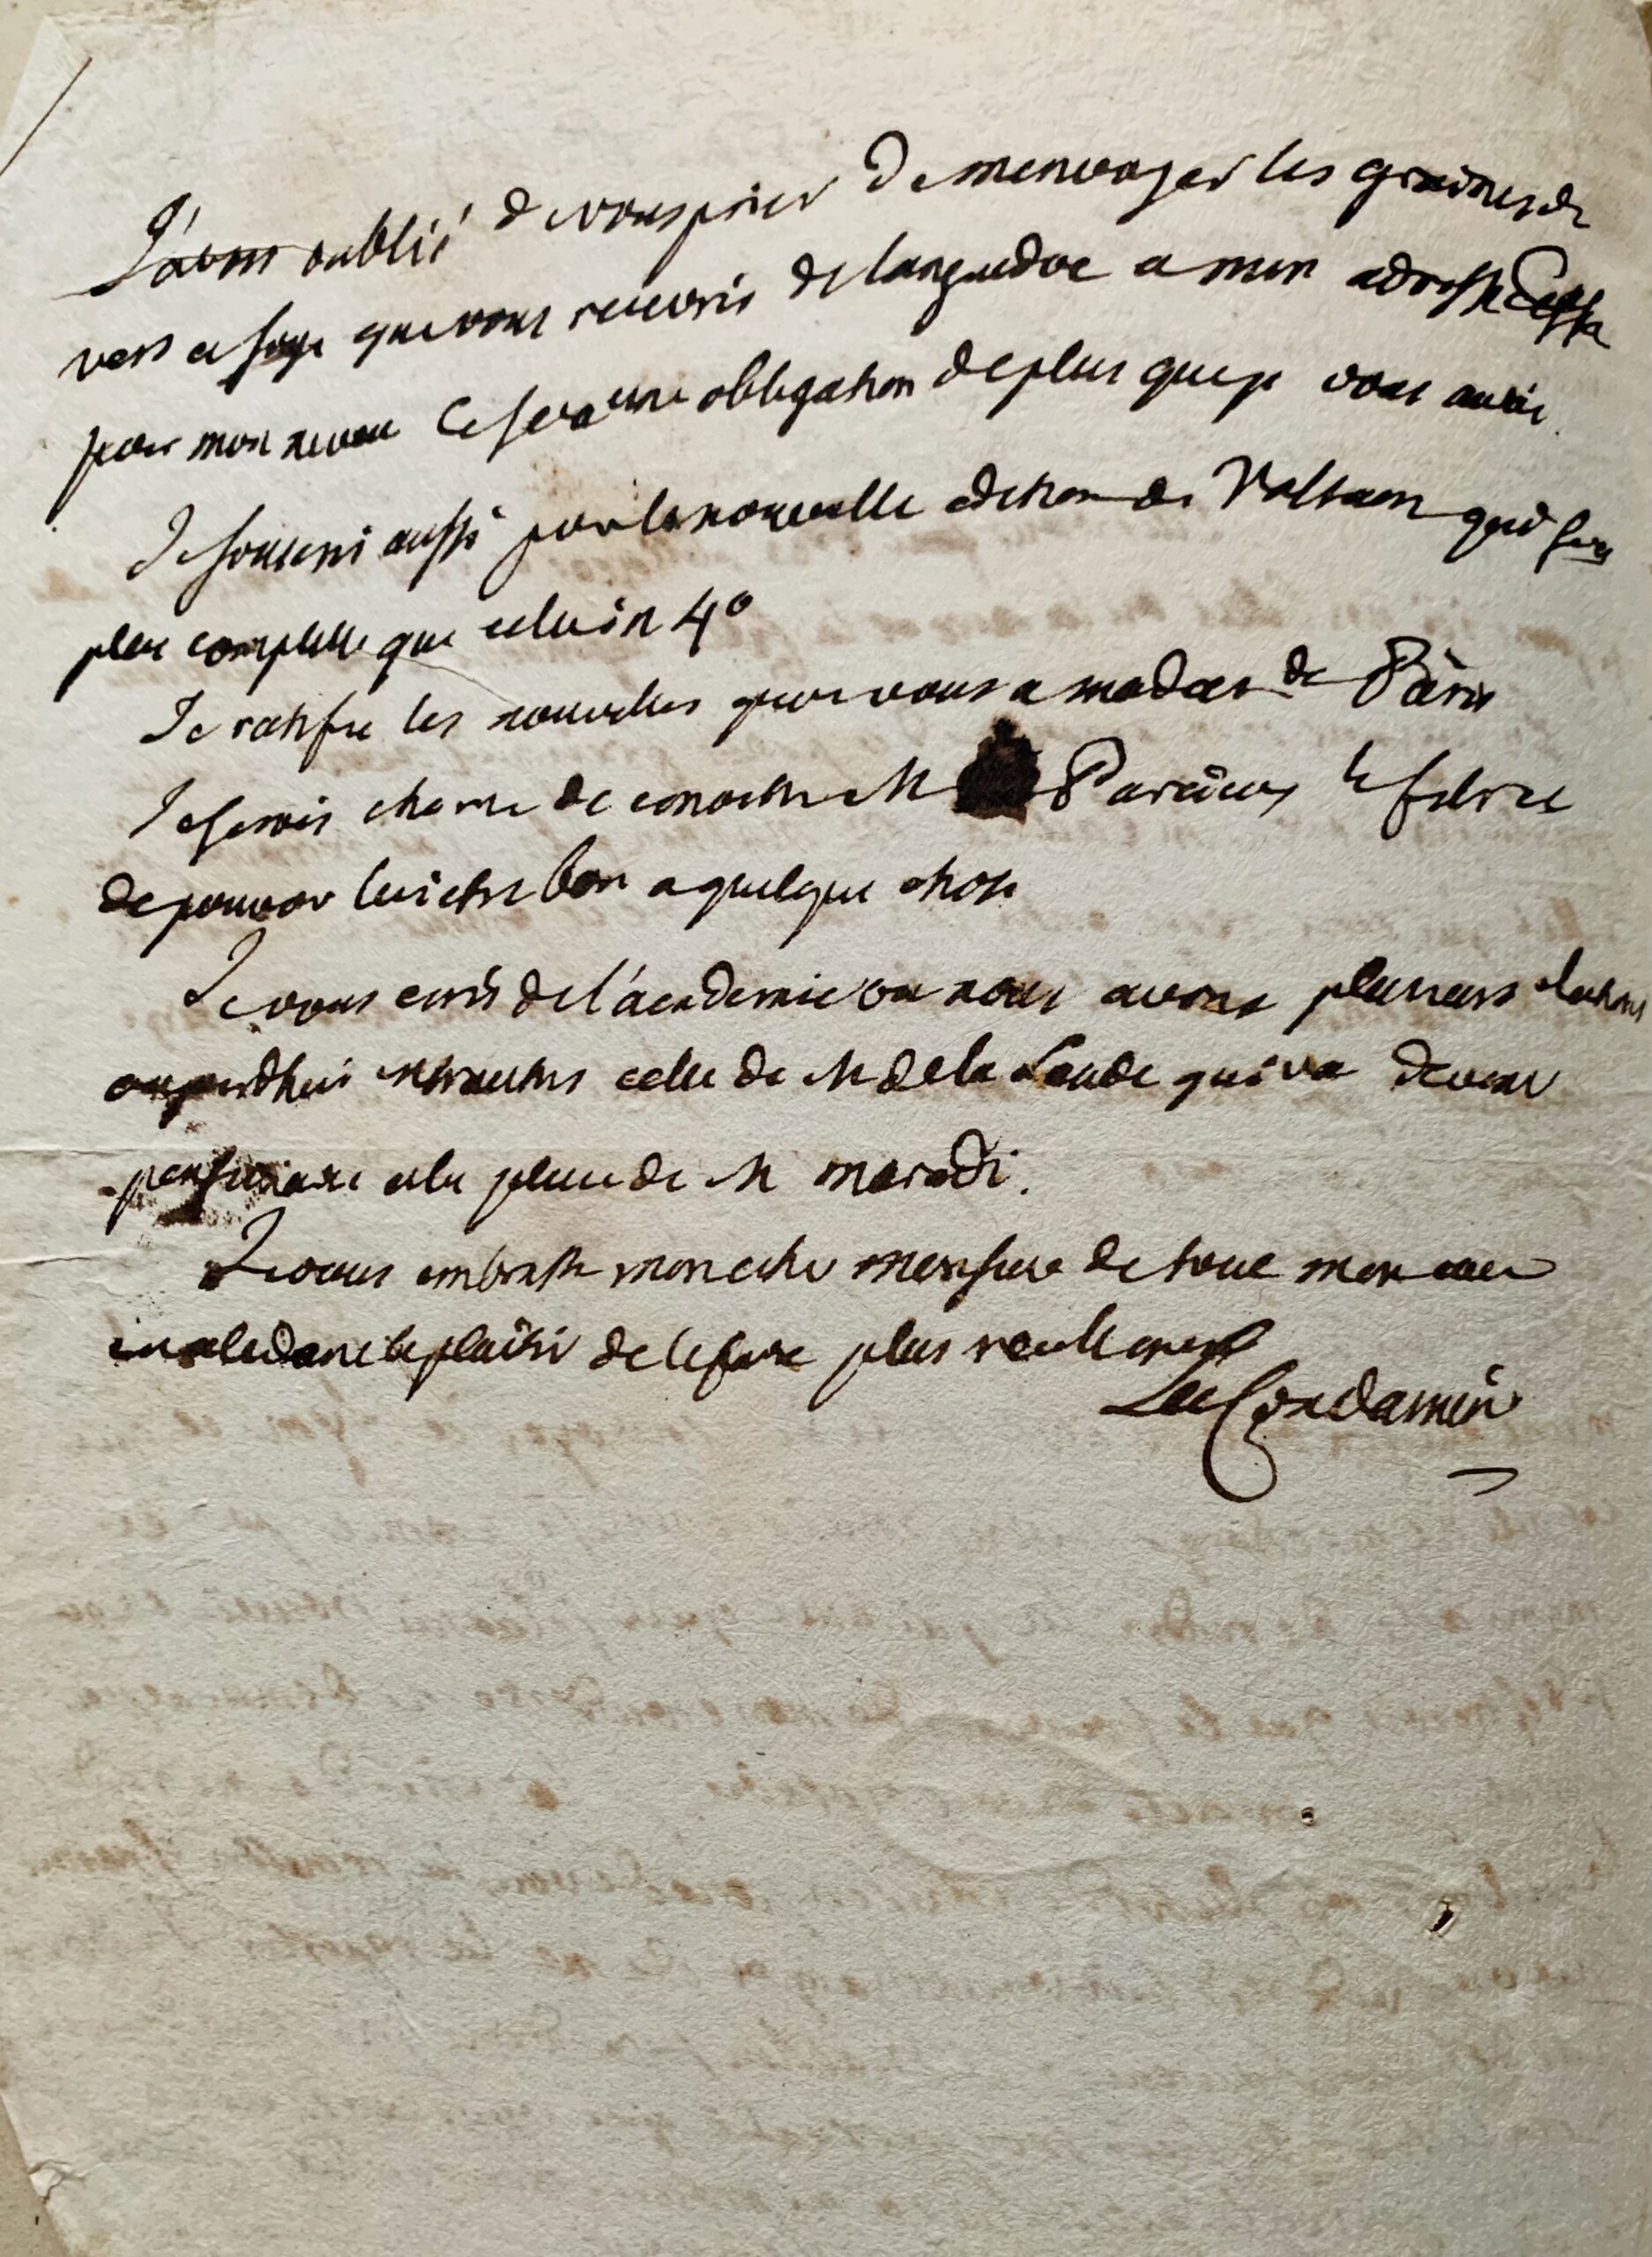 J'avois oublié de vous prier de menvoyer les graines de
vers a soye que vous recevrés de languedoc a mon adresse
pour mon neveu Ce sera une obligation de plus que je vous aurai
Je souscris aussi pour la nouvelle edition de Voltaire qui sera
plus complette que celle in 4°
Je ratifie les nouvelles que vous a mandées de Paris
Je serois charmé de conoitre M le febvre
de pouvoir lui etre bon a quelque chose
Je vous ecris de l'academie ou nous avons plusieurs elections
aujourdhui entrautres celle de M de la Lande qui va devenir
pensionaire a la place de M maraldi.
Je vous embrasse mon cher monsieur de tout mon coeur
le plaisir de le faire plus reellement
La Condamine